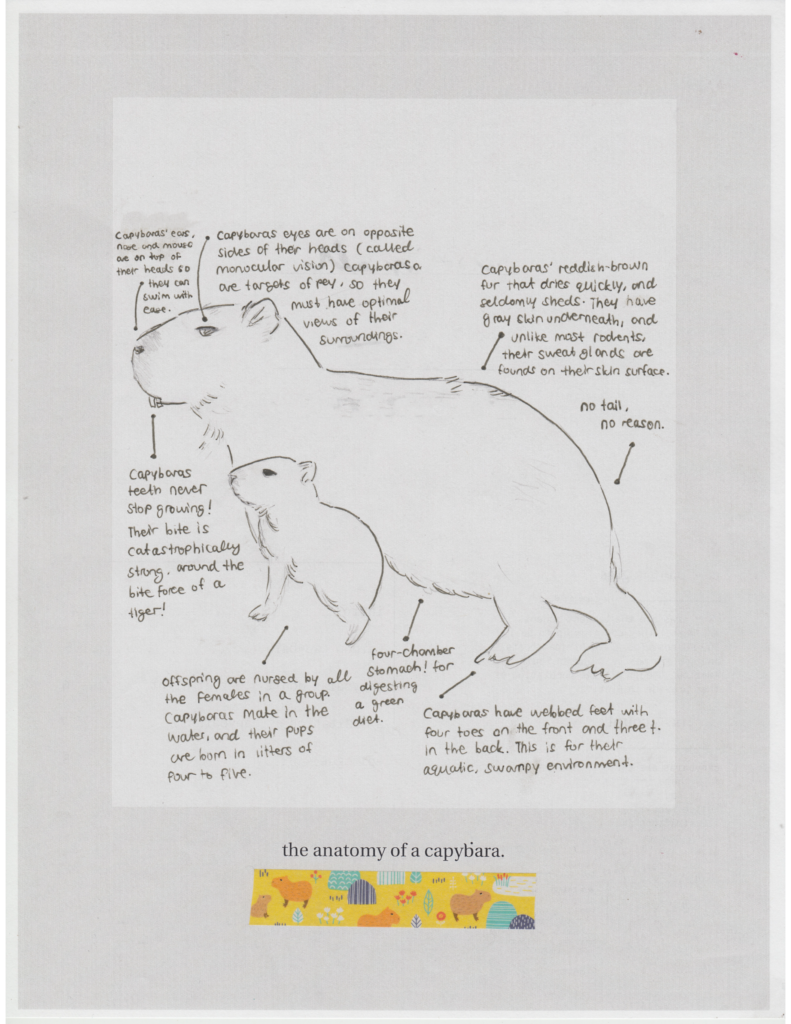 Capybaras' ears,
nose and mouse
are on top of
their heads so
they can
swim with
ease.
Capybaras eyes are on opposite
sides of their heads (called
monocular vision) capybarasa
are targets of pey, so they
must have optimal
views of their
surroundings.
Capybaras' reddish-brown
fur that dries quickly, and
seldomly sheds. They have
gray skin underneath, and
unlike most rodents,
their sweat glands are
founds on their skin surface.
no tail,
no reason.
Capybaras
teeth never
stop growing!
Their bite is
catastrophically
strong, around the
bite force of a
tiger!
Offspring are nursed by all
the females in a group.
Capybaras mate in the
water, and their pups
are born in litters of
four to five.
four-chamber
stomach! for
digesting
a green
diet.
Capybaras have webbed feet with
four toes on the front and three t.
in the back. This is for their
aquatic, swampy environment.
the anatomy of a capybara.